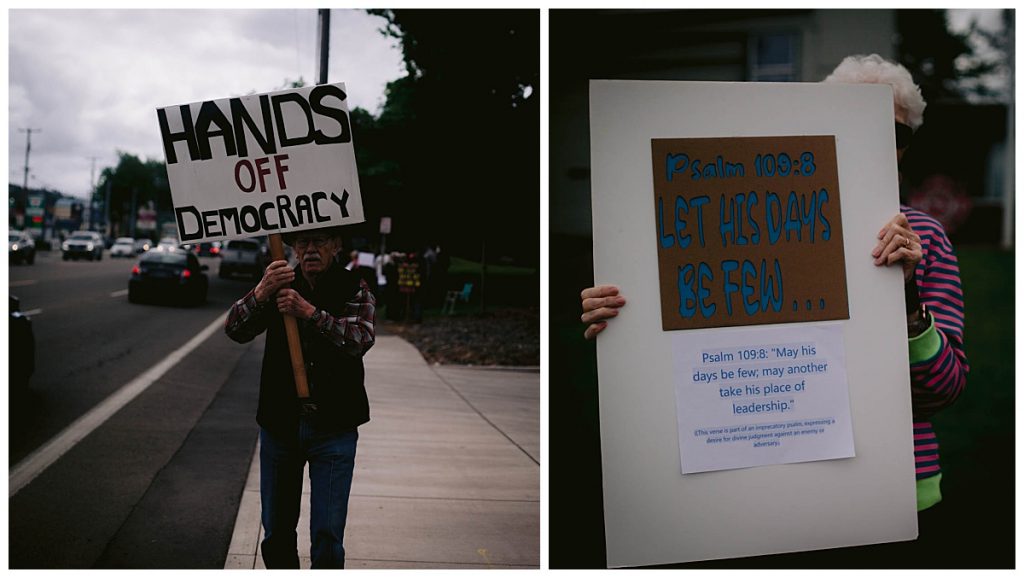 HANDS
OFF
DEMOCRACY
Psalm 109:8
LET HIS DAYS
BE FEW...
Psalm 109:8: "May his
days be few; may another
take his place of
leadership."
(This verse is part of an imprecatory psalm, expressing a
desire for divine judgment against an enemy or
adversary.)